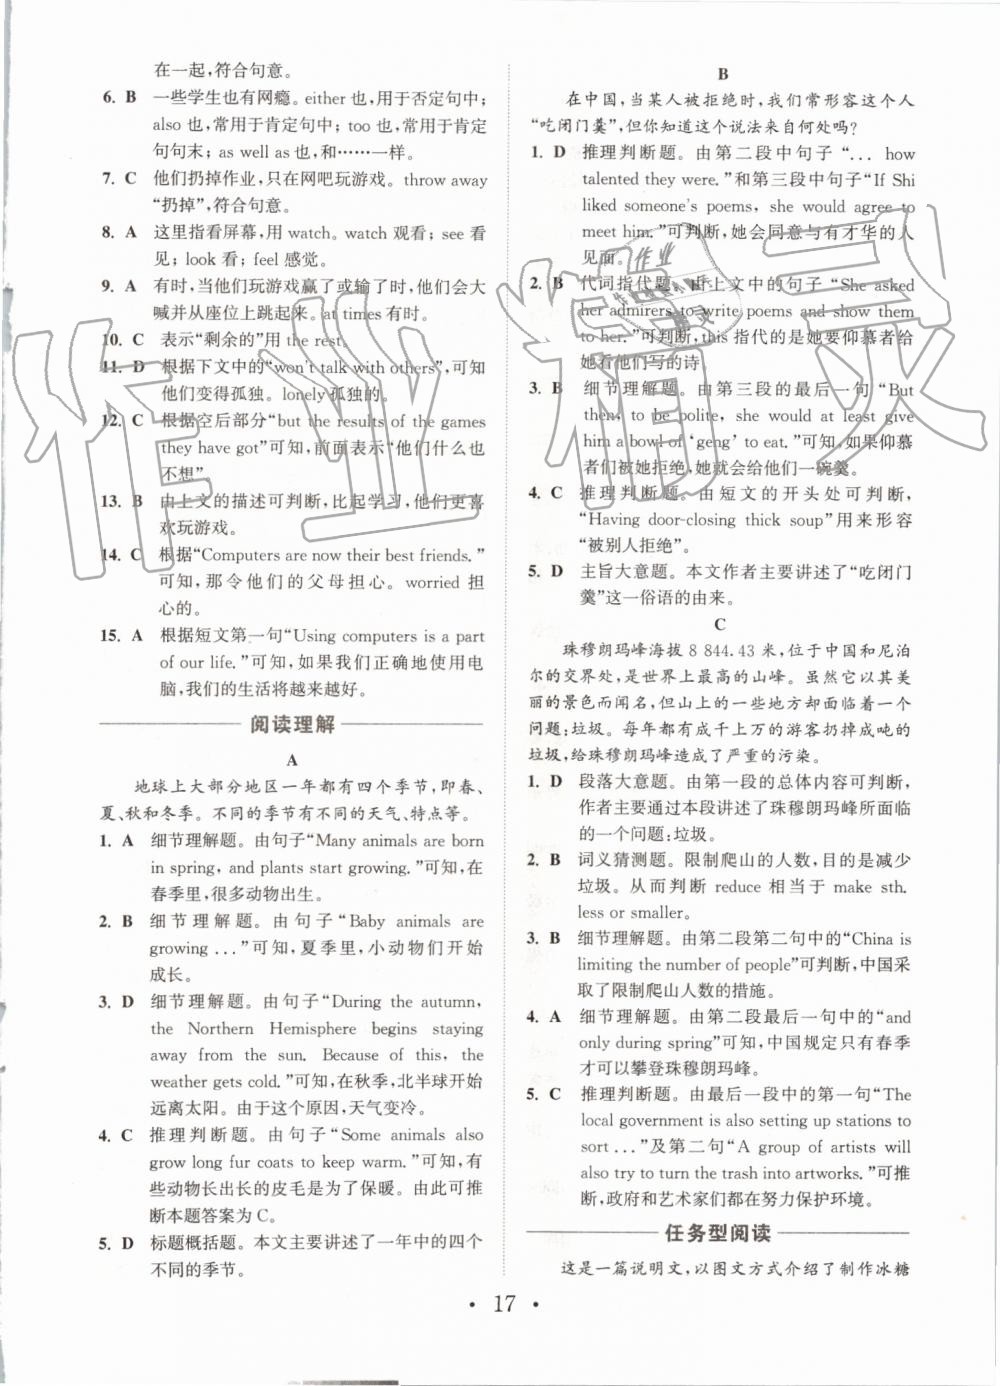 在一起,符合句意。
6. B 一些学生也有网瘾。either 也,用于否定句中;
also 也,常用于肯定句中;too 也,常用于肯定
句句末;as well as 也,和……一样。
7. C 他们扔掉作业,只在网吧玩游戏。throw away
“扔掉”,符合句意。
8. A 这里指看屏幕,用 watch。watch 观看;see 看
见;look 看;feel 感觉。
9. A 有时,当他们玩游戏赢了或输了时,他们会大
喊并从座位上跳起来。at times 有时。
10. C 表示“剩余的”用 the rest。
11. D 根据下文中的“won't talk with others”,可知
他们变得孤独。lonely孤独的。
12. C 根据空后部分“but the results of the games
they have got”可知,前面表示“他们什么也
不想”
13. B 由上文的描述可判断,比起学习,他们更喜
欢玩游戏。
14. C 根据“Computers are now their best friends.”
可知,那令他们的父母担心。worried 担
心的。
15. A 根据短文第一句“Using computers is a part
of our life.”可知,如果我们正确地使用电
脑,我们的生活将越来越好。
阅读理解
A
地球上大部分地区一年都有四个季节,即春、
夏、秋和冬季。不同的季节有不同的天气、特点等。
1. A 细节理解题。由句子“Many animals are born
in spring, and plants start growing.”可知,在
春季里,很多动物出生。
2. B 细节理解题。由句子“Baby animals are
growing ...”可知,夏季里,小动物们开始
成长。
3. D 细节理解题。由句子“During the autumn,
the Northern Hemisphere begins staying
away from the sun. Because of this, the
weather gets cold.”可知,在秋季,北半球开始
远离太阳。由于这个原因,天气变冷。
4. C 推理判断题。由句子“Some animals also
grow long fur coats to keep warm.”可知,有
些动物长出长的皮毛是为了保暖。由此可推
断本题答案为C。
5. D 标题概括题。本文主要讲述了一年中的四个
不同的季节。
B
在中国,当某人被拒绝时,我们常形容这个人
“吃闭门羹”,但你知道这个说法来自何处吗?
1. D 推理判断题。由第二段中句子“... how
talented they were.”和第三段中句子“If Shi
liked someone's poems, she would agree to
meet him.”可判断,她会同意与有才华的人
见面。
2. B 代词指代题。由上文中的句子“She asked
her admirers to write poems and show them
to her.”可判断,this 指代的是她要仰慕者给
她看他们写的诗。
3. B 细节理解题。由第三段的最后一句“But
then, to be polite, she would at least give
him a bowl of ‘geng’ to eat.”可知,如果仰慕
者们被她拒绝,她就会给他们一碗羹。
4. C 推理判断题。由短文的开头处可判断,
“Having door-closing thick soup”用来形容
“被别人拒绝”。
5. D 主旨大意题。本文作者主要讲述了“吃闭门
羹”这一俗语的由来。
C
珠穆朗玛峰海拔 8 844.43 米,位于中国和尼泊
尔的交界处,是世界上最高的山峰。虽然它以其美
丽的景色而闻名,但山上的一些地方却面临着一个
问题:垃圾。每年都有成千上万的游客扔掉成吨的
垃圾,给珠穆朗玛峰造成了严重的污染。
1. D 段落大意题。由第一段的总体内容可判断,
作者主要通过本段讲述了珠穆朗玛峰所面临
的一个问题:垃圾。
2. B 词义猜测题。限制爬山的人数,目的是减少
垃圾。从而判断 reduce 相当于 make sth.
less or smaller。
3. B 细节理解题。由第二段第二句中的“China is
limiting the number of people”可判断,中国采
取了限制爬山人数的措施。
4. A 细节理解题。由第二段最后一句中的“and
only during spring”可知,中国规定只有春季
才可以攀登珠穆朗玛峰。
5. C 推理判断题。由最后一段中的第一句“The
local government is also setting up stations to
sort ...”及第二句“A group of artists will
also try to turn the trash into artworks.”可推
断,政府和艺术家们都在努力保护环境。
任务型阅读
这是一篇说明文,以图文方式介绍了制作冰糖
• 17 •
作业精灵